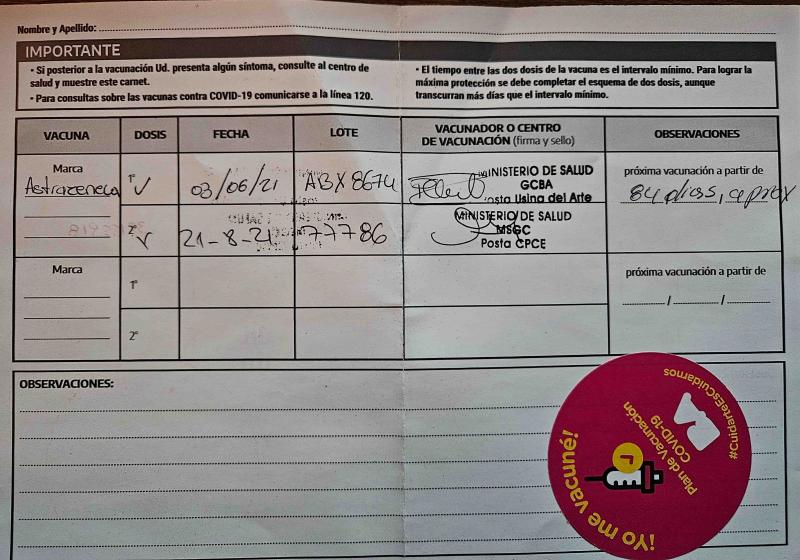 Nombre y Apellido:
IMPORTANTE
• Si posterior a la vacunación Ud. presenta algún síntoma, consulte al centro de
salud y muestre este carnet.
• Para consultas sobre las vacunas contra COVID-19 comunicarse a la línea 120.
• El tiempo entre las dos dosis de la vacuna es el intervalo mínimo. Para lograr la
máxima protección se debe completar el esquema de dos dosis, aunque
transcurran más días que el intervalo mínimo.
VACUNA DOSIS FECHA LOTE VACUNADOR O CENTRO DE VACUNACIÓN (firma y sello) OBSERVACIONES
Marca
Astrazeneca
1º ✓
03/06/21
ABX 8674
MINISTERIO DE SALUD
GCBA
Posta Usina del Arte
próxima vacunación a partir de
84 días, aprox
2º ✓
21-8-21
77786
MINISTERIO DE SALUD
MSGC
Posta CPCE
Marca
1º
2º
próxima vacunación a partir de
/ /
OBSERVACIONES:
#CuidarteEsCuidarnos
Plan de Vacunación
COVID-19
¡Yo me vacuné!